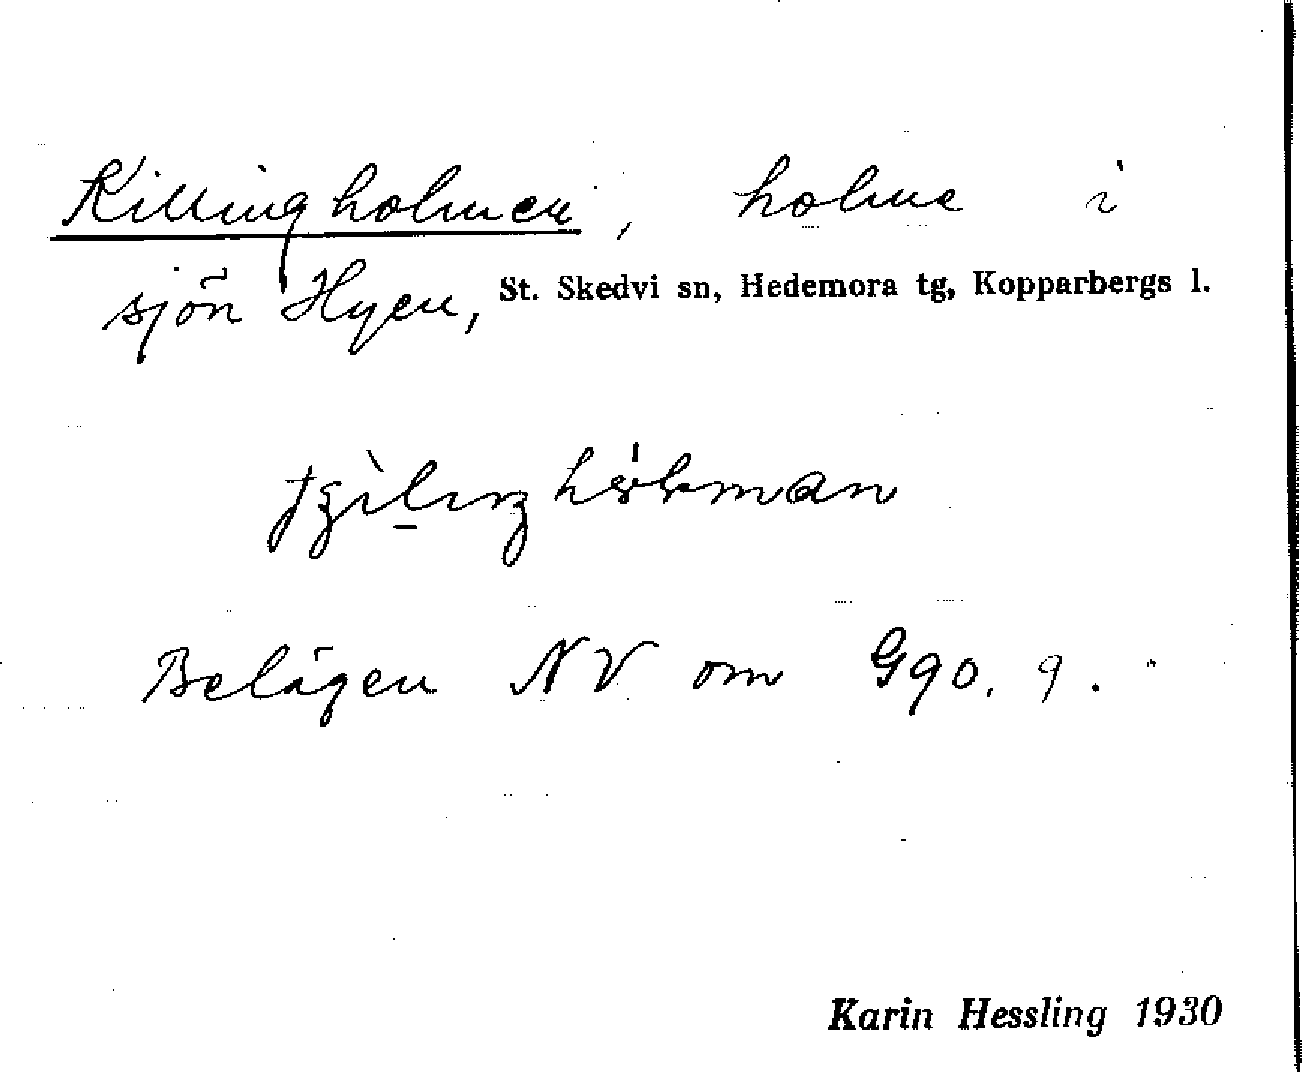 Killingholmen, holme i
sjön Hyen, St. Skedvi sn, Hedemora tg, Kopparbergs l.
Belägen NV om Ggo. 9.
Karin Hessling 1930